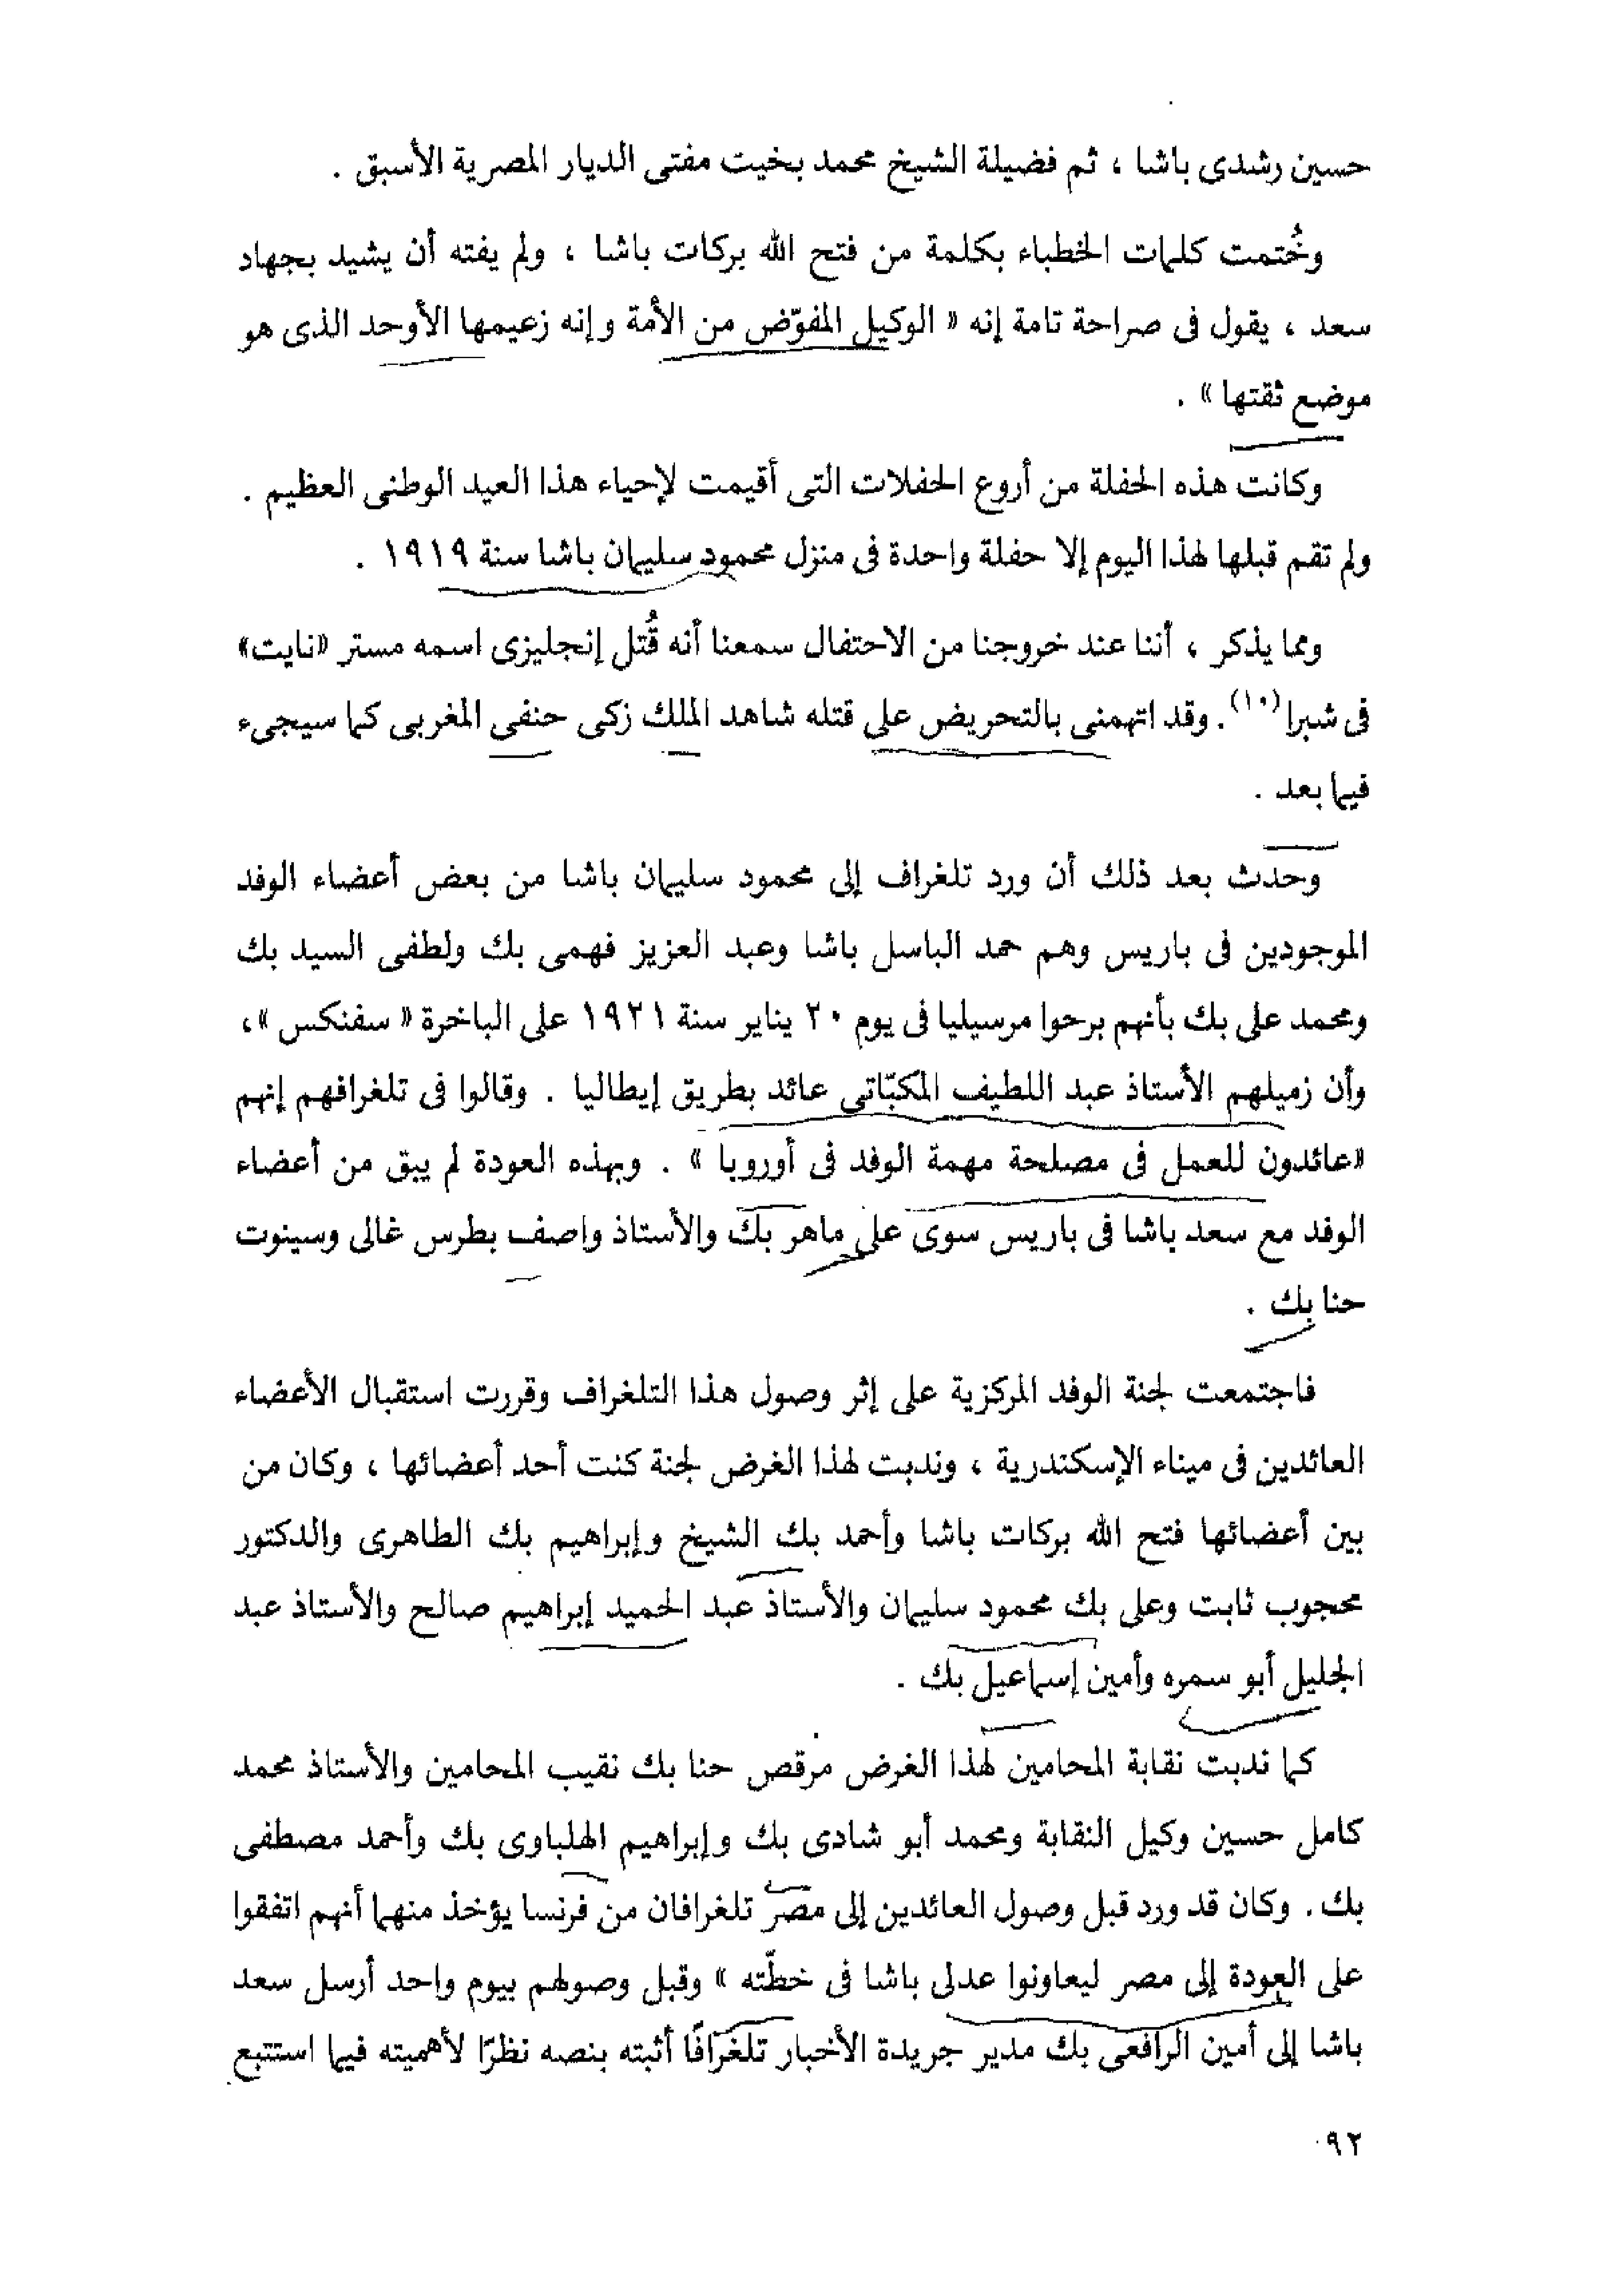 حسين رشدى باشا ، ثم فضيلة الشيخ محمد بخيت مفتى الديار المصرية الأسبق .
وخُتمت كلمات الخطباء بكلمة من فتح الله بركات باشا ، ولم يفته أن يشيد بجهاد
سعد ، يقول فى صراحة تامة إنه « الوكيل المفوّض من الأمة وإنه زعيمها الأوحد الذى هو
موضع ثقتها » .
وكانت هذه الحفلة من أروع الحفلات التى أقيمت لإحياء هذا العيد الوطنى العظيم .
ولم تقم قبلها لهذا اليوم إلا حفلة واحدة فى منزل محمود سليمان باشا سنة ١٩١٩ .
ومما يذكر ، أننا عند خروجنا من الاحتفال سمعنا أنه قُتل إنجليزى اسمه مستر «نايت»
فى شبرا(١٠). وقد اتهمنى بالتحريض على قتله شاهد الملك زكى حنفى المغربى كما سيجىء
فيما بعد .
وحدث بعد ذلك أن ورد تلغراف إلى محمود سليمان باشا من بعض أعضاء الوفد
الموجودين فى باريس وهم حمد الباسل باشا وعبد العزيز فهمى بك ولطفى السيد بك
ومحمد على بك بأنهم برحوا مرسيليا فى يوم ٢٠ يناير سنة ١٩٢١ على الباخرة « سفنكس »،
وأن زميلهم الأستاذ عبد اللطيف المكبّاتى عائد بطريق إيطاليا . وقالوا فى تلغرافهم إنهم
«عائدون للعمل فى مصلحة مهمة الوفد فى أوروبا » . وبهذه العودة لم يبق من أعضاء
الوفد مع سعد باشا فى باريس سوى على ماهر بك والأستاذ واصف بطرس غالى وسينوت
حنا بك .
فاجتمعت لجنة الوفد المركزية على إثر وصول هذا التلغراف وقررت استقبال الأعضاء
العائدين فى ميناء الإسكندرية ، وندبت لهذا الغرض لجنة كنت أحد أعضائها ، وكان من
بين أعضائها فتح الله بركات باشا وأحمد بك الشيخ وإبراهيم بك الطاهرى والدكتور
محجوب ثابت وعلى بك محمود سليمان والأستاذ عبد الحميد إبراهيم صالح والأستاذ عبد
الجليل أبو سمره وأمين إسماعيل بك .
كما ندبت نقابة المحامين لهذا الغرض مرقص حنا بك نقيب المحامين والأستاذ محمد
كامل حسين وكيل النقابة ومحمد أبو شادى بك وإبراهيم الهلباوى بك وأحمد مصطفى
بك . وكان قد ورد قبل وصول العائدين إلى مصر تلغرافان من فرنسا يؤخذ منهما أنهم اتفقوا
على العودة إلى مصر ليعاونوا عدلى باشا فى خطّته » وقبل وصولهم بيوم واحد أرسل سعد
باشا إلى أمين الرافعى بك مدير جريدة الأخبار تلغرافًا أثبته بنصه نظرًا لأهميته فيما استتبع
٩٢